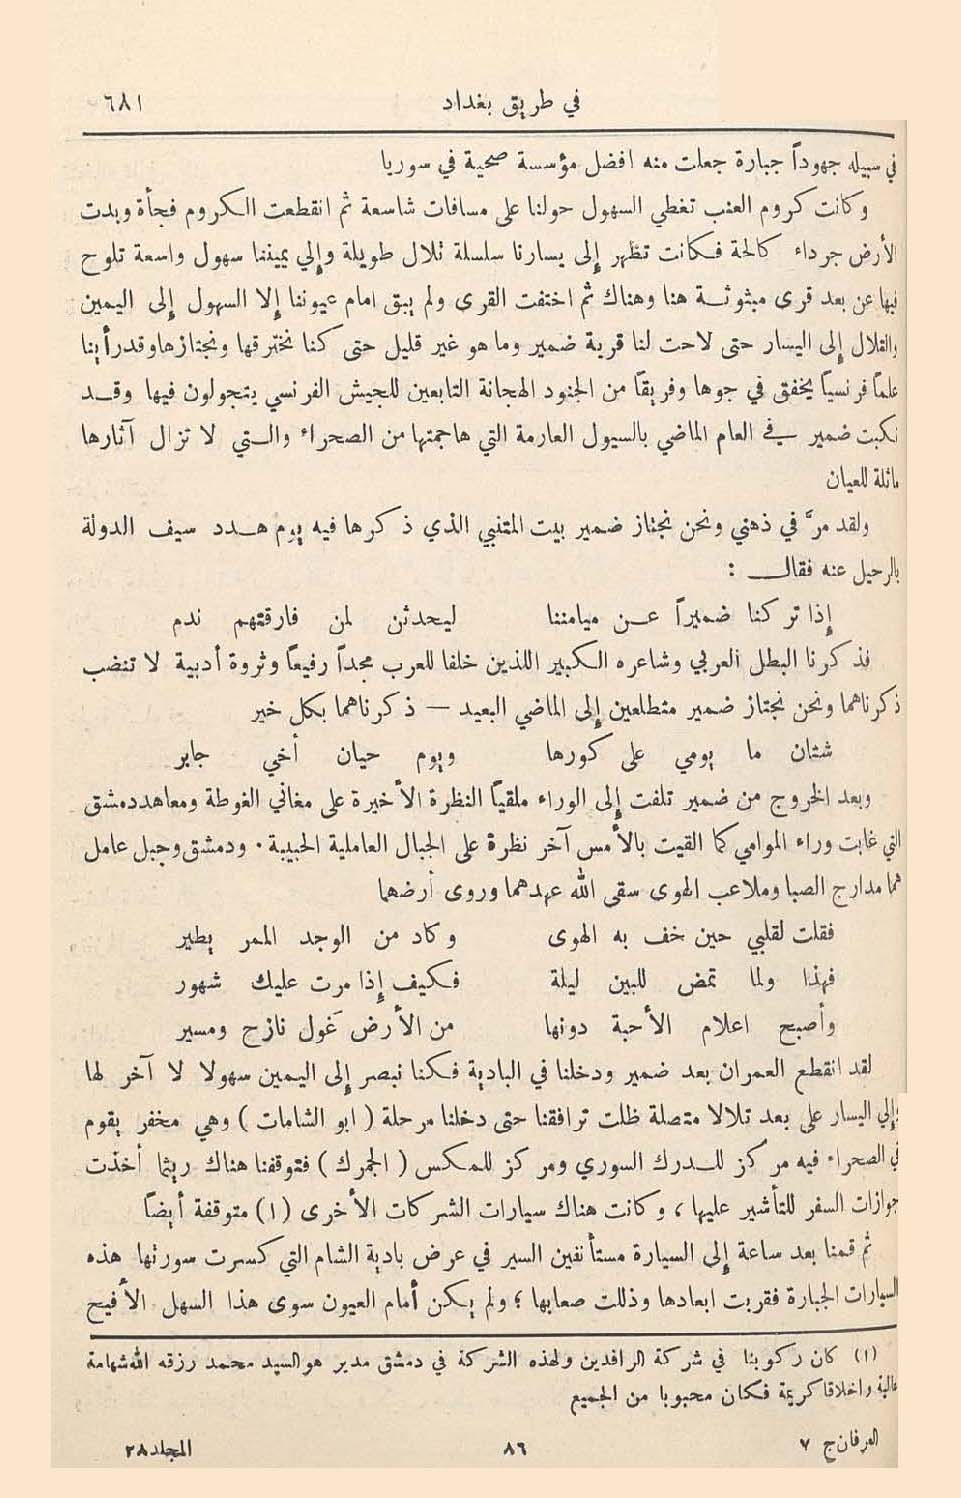 في طريق بغداد ٦٨١
في سبيله جهوداً جبارة جعلت منه افضل مؤسسة صحية في سوريا
وكانت كروم العنب تغطي السهول حولنا على مسافات شاسعة ثم انقطعت الكروم فجأة وبدت
الأرض جرداء كالحة فكانت تظهر إلى يسارنا سلسلة تلال طويلة وإلي يميننا سهول واسعة تلوح
فيها عن بعد قرى مبثوثة هنا وهناك ثم اختفت القرى ولم يبق امام عيوننا إلا السهول إلى اليمين
والتلال إلى اليسار حتى لاحت لنا قرية ضمير وما هو غير قليل حتى كنا نخترقها ونجتازها وقد رأينا
علماً فرنسياً يخفق في جوها وفريقاً من الجنود الهجانة التابعين للجيش الفرنسي يتجولون فيها وقد
نكبت ضمير في العام الماضي بالسيول العارمة التي هاجمتها من الصحراء والتي لا تزال آثارها
ماثلة للعيان
ولقد مرَّ في ذهني ونحن نجتاز ضمير بيت المتنبي الذي ذكرها فيه يوم هدد سيف الدولة
بالرحيل عنه فقال :
إذا تركنا ضميراً عن ميامننا ليحدثن لمن فارقتهم ندم
فذكرنا البطل العربي وشاعره الكبير اللذين خلفا للعرب مجداً رفيعاً وثروة أدبية لا تنضب
ذكرناهما ونحن نجتاز ضمير متطلعين إلى الماضي البعيد — ذكرناهما بكل خير
شتان ما يومي على كورها ويوم حيان أخي جابر
وبعد الخروج من ضمير تلفت إلى الوراء ملقياً النظرة الأخيرة على مغاني الغوطة ومعاهد دمشق
التي غابت وراء الموامي كما القيت بالأمس آخر نظرة على الجبال العاملية الحبيبة . ودمشق وجبل عامل
هما مدارج الصبا وملاعب الهوى سقى الله عهدهما وروى أرضهما
فقلت لقلبي حين خف به الهوى وكاد من الوجد الممر يطير
فهذا ولما تمض للبين ليلة فكيف إذا مرت عليك شهور
وأصبح اعلام الأحبة دونها من الأرض غول نازح ومسير
لقد انقطع العمران بعد ضمير ودخلنا في البادية فكنا نبصر إلى اليمين سهولا لا آخر لها
وإلي اليسار على بعد تلالا متصلة ظلت ترافقنا حتى دخلنا مرحلة ( ابو الشامات ) وهي مخفر يقوم
في الصحراء فيه مركز للدرك السوري ومركز للمكس ( الجمرك ) فتوقفنا هناك ريثما أخذت
جوازات السفر للتأشير عليها ، وكانت هناك سيارات الشركات الأخرى (١) متوقفة أيضاً
ثم قمنا بعد ساعة إلى السيارة مستأنفين السير في عرض بادية الشام التي كسرت سورتها هذه
السيارات الجبارة فقربت ابعادها وذللت صعابها ؛ ولم يكن أمام العيون سوى هذا السهل الأفيح
(١) كان ركوبنا في شركة الرافدين ولهذه الشركة في دمشق مدير هو السيد محمد رزقه الله شهامة
عالية واخلاقا كريمة فكان محبوبا من الجميع
العرفان ج ٧ ٨٦ المجلد ٢٨